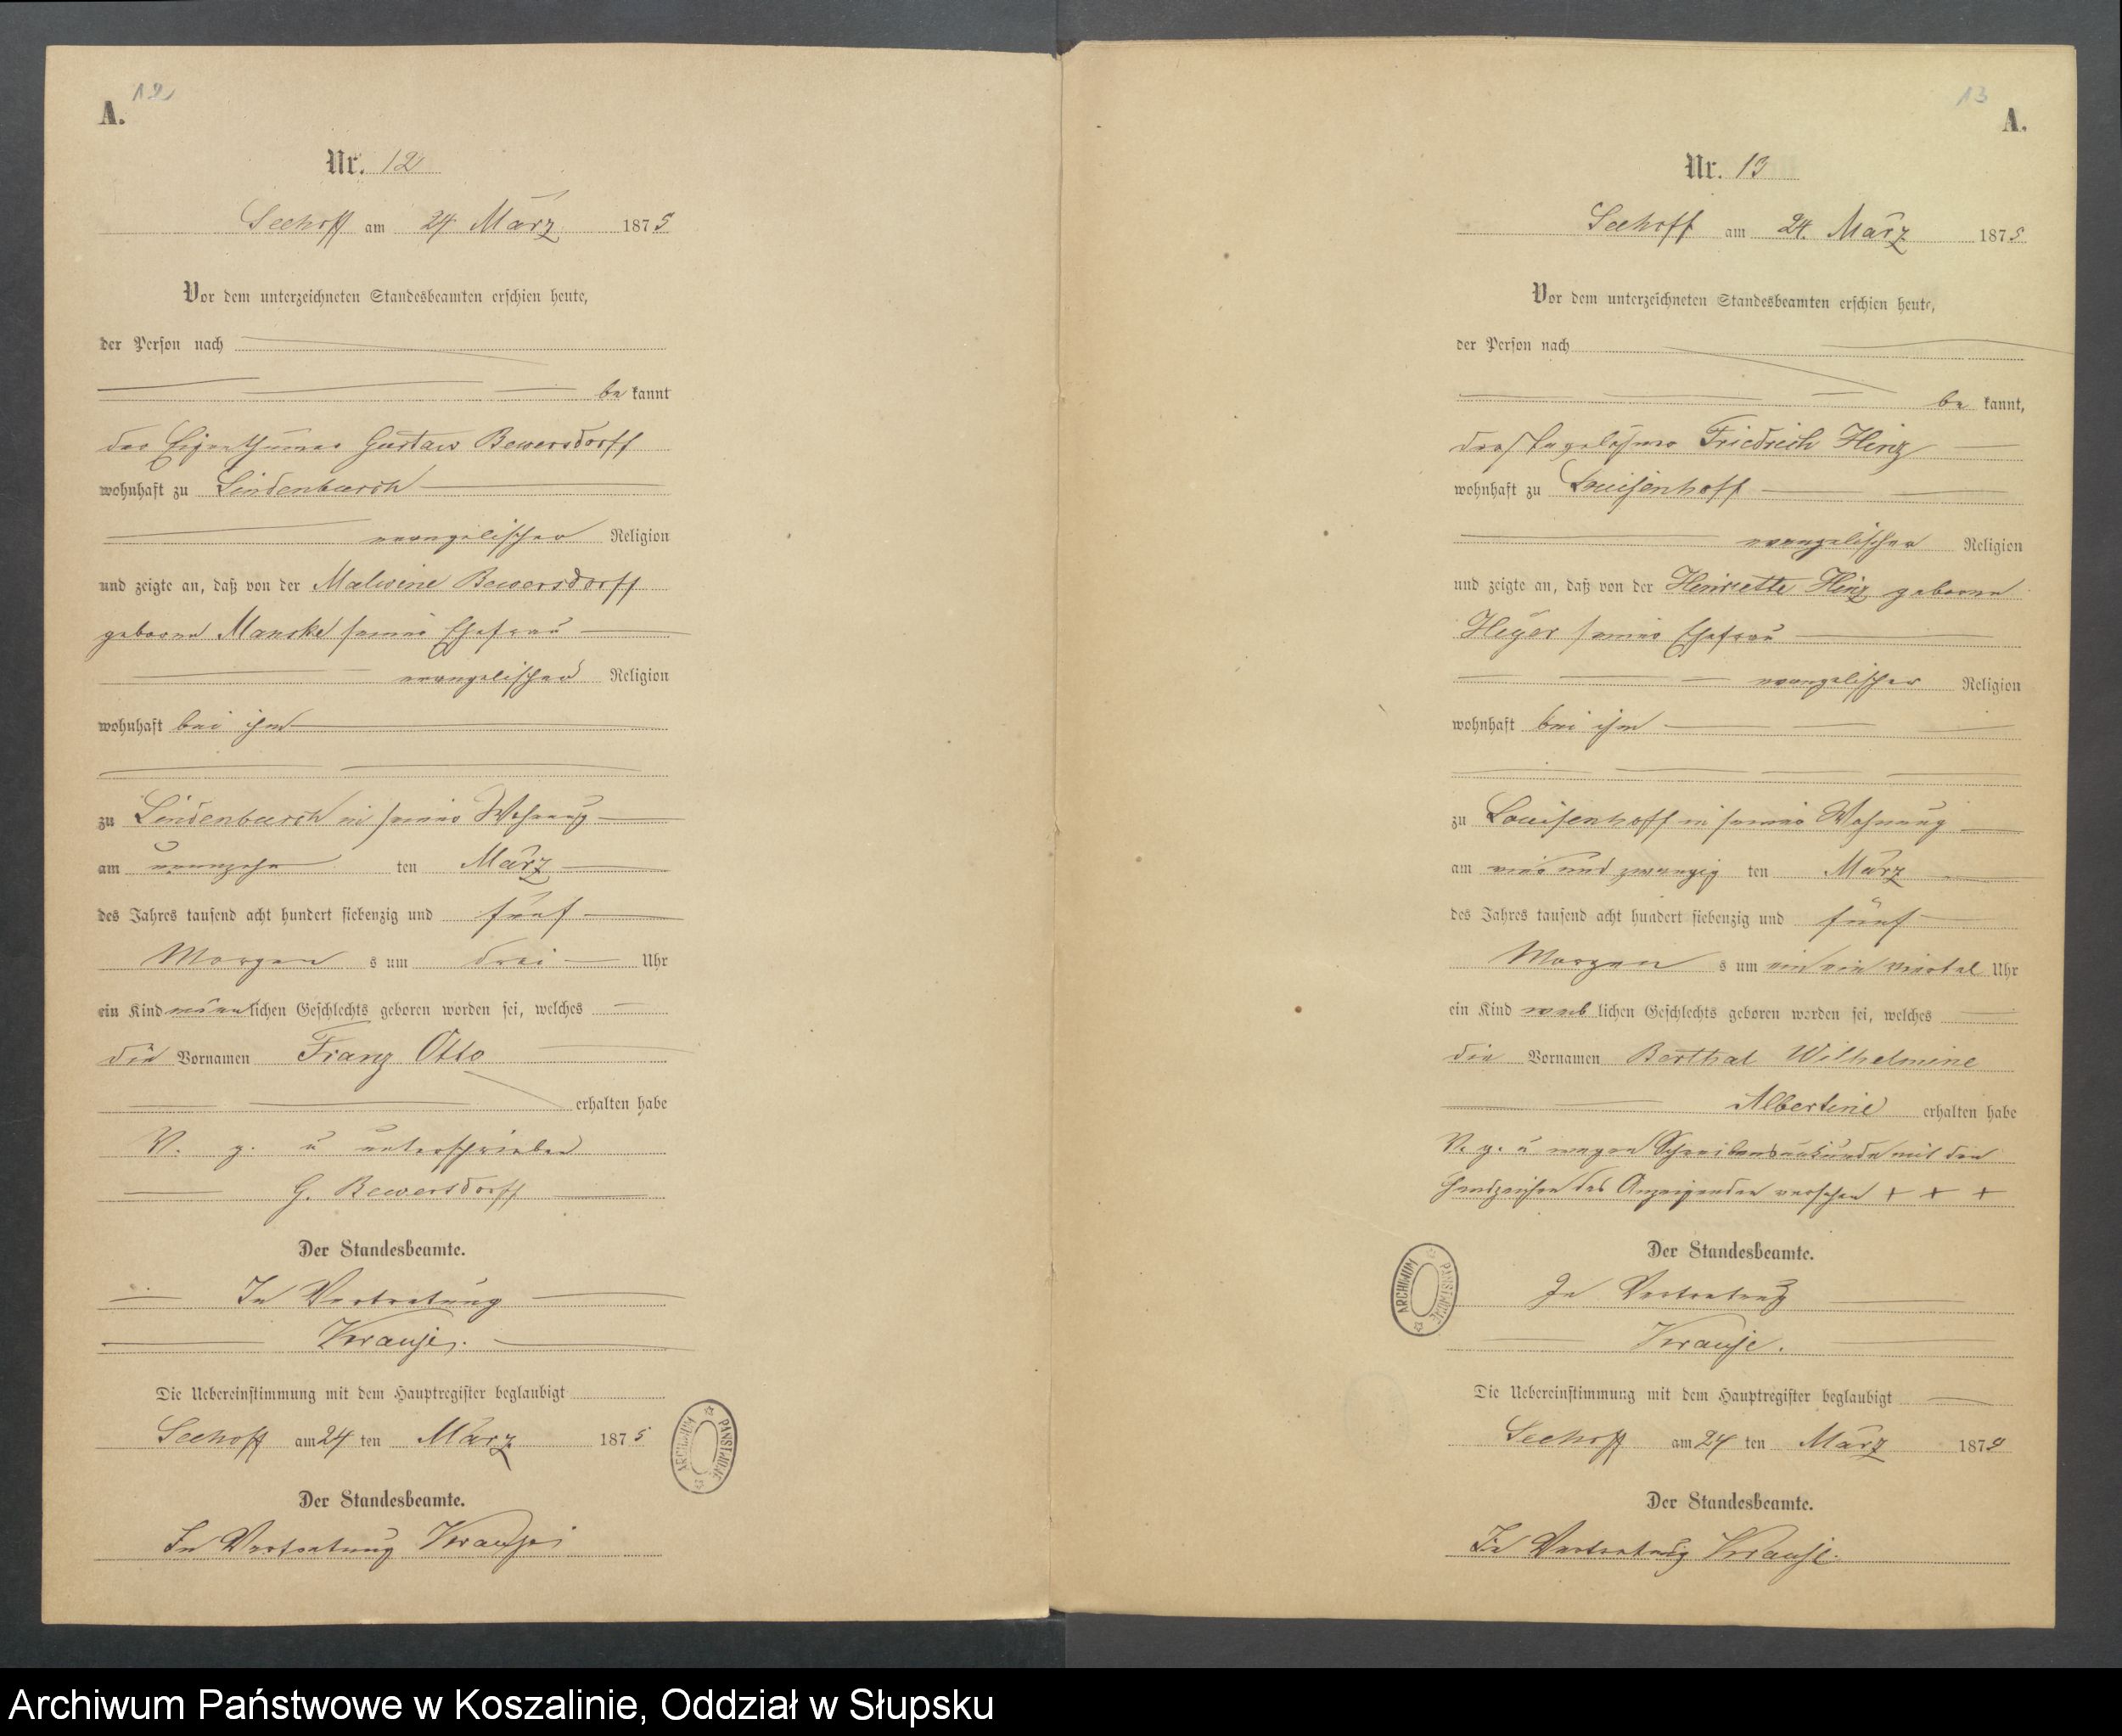 A.
12
Nr. 12
Seehoff am 24 März 1875
Vor dem unterzeichneten Standesbeamten erschien heute,
der Person nach
be kannt
der Eigenthümer Gustav Bewersdorff
wohnhaft zu Lindenbusch
evangelischer Religion
und zeigte an, daß von der Malwine Bewersdorff
geborne Manske seiner Ehefrau
evangelischer Religion
wohnhaft bei ihm
zu Lindenbusch in seiner Wohnung
am neunzehn ten März
des Jahres tausend acht hundert siebenzig und fünf
Morgen s um drei Uhr
ein Kind männlichen Geschlechts geboren worden sei, welches
die Vornamen Franz Otto
erhalten habe
V. g. u unterschrieben
G. Bewersdorff
Der Standesbeamte.
In Vertretung
Krause.
Die Uebereinstimmung mit dem Hauptregister beglaubigt
Seehoff am 24 ten März 1875
Der Standesbeamte.
In Vertretung Krause
ARCHIWUM PAŃSTWOWE
13
A.
Nr. 13
Seehoff am 24. März 1875
Vor dem unterzeichneten Standesbeamten erschien heute,
der Person nach
be kannt,
der Tagelöhner Friedrich Hinz
wohnhaft zu Louisenhoff
evangelischer Religion
und zeigte an, daß von der Henriette Hinz geborne
Heyer seiner Ehefrau
evangelischer Religion
wohnhaft bei ihm
zu Louisenhoff in seiner Wohnung
am vier und zwanzig ten März
des Jahres tausend acht hundert siebenzig und fünf
Morgen s um ein ein viertel Uhr
ein Kind weib lichen Geschlechts geboren worden sei, welches
die Vornamen Bertha Wilhelmine
Albertine erhalten habe
V. g. u wegen Schreibensunkunde mit den
Handzeichen des Anzeigenden versehen + + +
Der Standesbeamte.
In Vertretung
Krause.
ARCHIWUM PAŃSTWOWE
Die Uebereinstimmung mit dem Hauptregister beglaubigt
Seehoff am 24 ten März 1875
Der Standesbeamte.
In Vertretung Krause.
Archiwum Państwowe w Koszalinie, Oddział w Słupsku